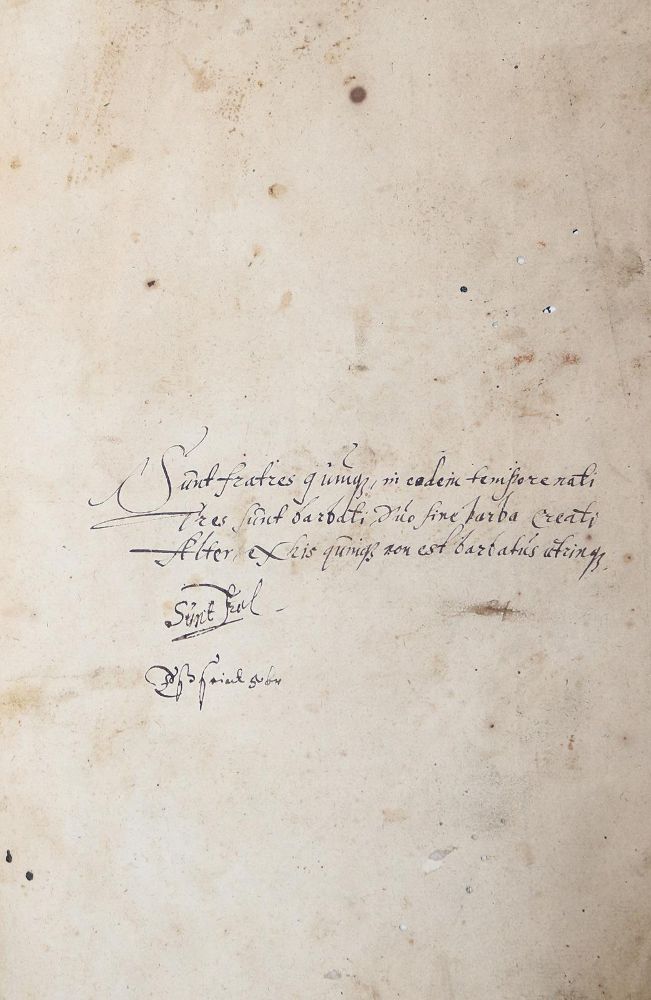 Sunt fratres quinqȝ, in eodem tempore nati
Tres sunt barbati Duo sine barba Creati
Alter ex his quinqȝ non est barbatus utrinqȝ
Sunt